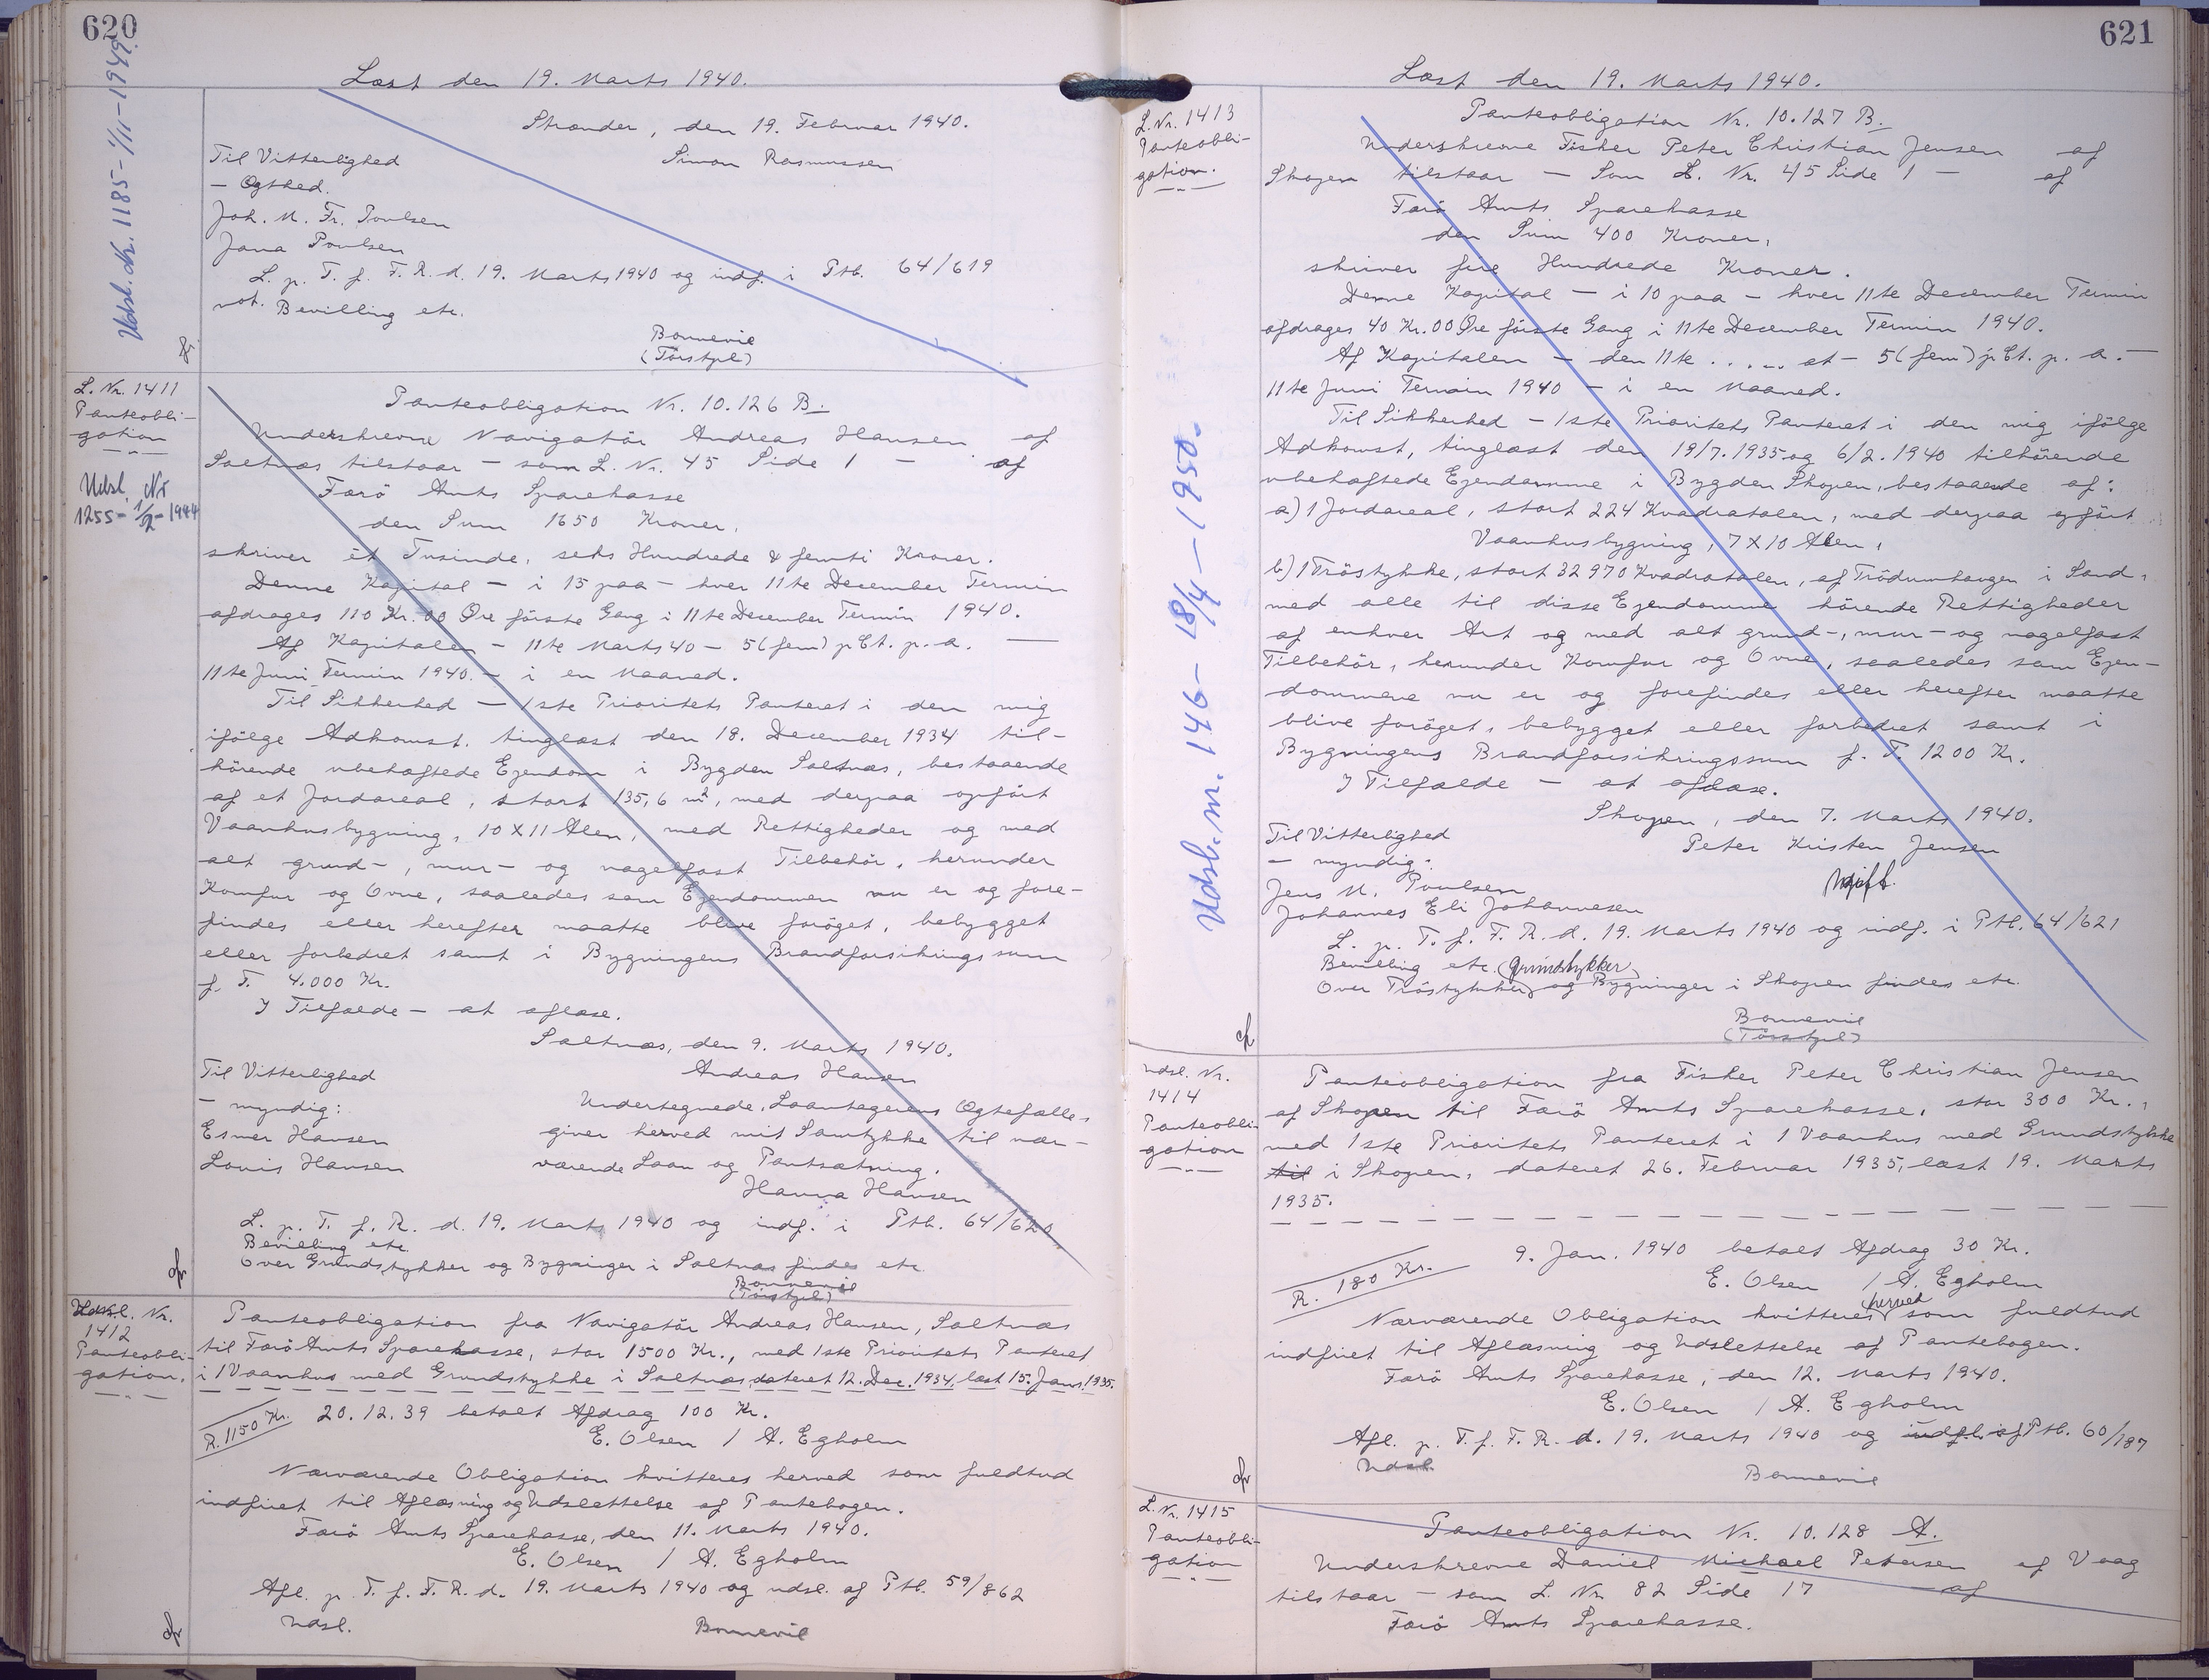 620
Læst den 19. Marts 1940.
Udsl. Nr. 1185 - 1/11 - 1949.
Strander, den 19. Februar 1940.
Til Vitterlighed
Simon Rasmussen
— Ægthed.
Joh. M. Fr. Poulsen
Jana Poulsen
L. p. T. f. F. R. d. 19. Marts 1940 og indf. i Ptb. 64/619
not. Bevilling etc.
Bonnevie
(Törstpl)
L. Nr. 1411
Panteobli-
gation
Udsl. Nr
1255 - 1/2 - 1944
Panteobligation Nr. 10.126 B.
Underskrevne Navigatör Andreas Hansen af
Saltnæs tilstaar — som L. Nr. 45 Side 1 — af
Færö Amts Sparekasse
den Sum 1650 Kroner,
skriver ét Tusinde, seks Hundrede & femti Kroner.
Denne Kapital — i 15 paa — hver 11te December Termin
afdrages 110 Kr. 00 Øre förste Gang i 11te December Termin 1940.
Af Kapitalen — 11te Marts 40 — 5 (fem) pCt. p. a. —
11te Juni Termin 1940. — i en Maaned.
Til Sikkerhed — 1ste Prioritets Panteret i den mig
ifölge Adkomst. tinglæst den 18. December 1934 til-
hörende ubehæftede Ejendom i Bygden Saltnæs, bestaaende
af et Jordareal, stort 135,6 m², med derpaa opfört
Vaanhusbygning, 10 X 11 Alen, med Rettigheder og med
alt grund-, mur- og nagelfast Tilbehör, herunder
Komfur og Ovne, saaledes som Ejendommen nu er og fore-
findes eller herefter maatte blive foröget, bebygget
eller forbedret samt i Bygningens Brandforsikringssum
f. T. 4.000 Kr.
I Tilfælde — at aflæse.
Saltnæs, den 9. Marts 1940.
Til Vitterlighed
Andreas Hansen
— myndig:
Undertegnede, Laantagerens Ægtefælle,
Esmer Hansen
giver herved mit Samtykke til nær-
Louis Hansen
værende Laan og Pantsætning.
Hanna Hansen
L. p. T. f. R. d. 19. Marts 1940 og indf. i Ptb. 64/620
Bevilling etc.
Over Grundstykker og Bygninger i Saltnæs findes etc.
Bonnevie
(Törstpl)
Udsl. Nr.
1412
Panteobli-
gation.
Panteobligation fra Navigatör Andreas Hansen, Saltnæs
til Færö Amts Sparekasse, stor 1500 Kr., med 1ste Prioritets Panteret
i 1 Vaanhus med Grundstykke i Saltnæs, dateret 12. Dec. 1934, læst 15. Jan. 1935.
R. 1150 Kr.
20.12.39 betalt Afdrag 100 Kr.
E. Olsen / A. Egholm
Nærværende Obligation kvitteres herved som fuldtud
indfriet til Aflæsning og Udslettelse af Pantebogen.
Færö Amts Sparekasse, den 11. Marts 1940.
E. Olsen / A. Egholm
Afl. p. T. f. F. R. d. 19. Marts 1940 og udsl. af Ptb. 59/862
Udsl.
Bonnevie
621
Læst den 19. Marts 1940.
L. Nr. 1413
Panteobli-
gation.
Udsl. nr. 146 - 18/4 - 1950.
Panteobligation Nr. 10.127 B.
Underskrevne Fisker Peter Christian Jensen af
Skopen tilstaar — Som L. Nr. 45 Side 1 — af
Færö Amts Sparekasse
den Sum 400 Kroner,
skriver fire Hundrede Kroner.
Denne Kapital — i 10 paa — hver 11te December Termin
afdrages 40 Kr. 00 Øre förste Gang i 11te December Termin 1940.
Af Kapitalen — den 11te ..... at — 5 (fem) pCt. p. a. —
11te Juni Termin 1940 — i en Maaned.
Til Sikkerhed — 1ste Prioritets Panteret i den mig ifölge
Adkomst, tinglæst den 19/7. 1935 og 6/2. 1940 tilhörende
ubehæftede Ejendomme i Bygden Skopen, bestaaende af:
a) 1 Jordareal, stort 224 Kvadratalen, med derpaa opfört
Vaanhusbygning, 7 X 10 Alen,
b) 1 Tröstykke, stort 32970 Kvadratalen, af Trödumhaugen i Sand,
med alle til disse Ejendomme hörende Rettigheder
af enhver Art og med alt grund-, mur- og nagelfast
Tilbehör, herunder Komfur og Ovne, saaledes som Ejen-
dommene nu er og forefindes eller herefter maatte
blive foröget, bebygget eller forbedret samt i
Bygningens Brandforsikringssum f. T. 1200 Kr.
I Tilfælde — at aflæse.
Skopen, den 7. Marts 1940.
Til Vitterlighed
Peter Kristen Jensen
— myndig:
Ugift.
Jens M. Poulsen
Johannes Eli Johannesen
L. p. T. f. F. R. d. 19. Marts 1940 og indf. i Ptb. 64/621
Bevilling etc. (Grundstykker)
Over Tröstykker og Bygninger i Skopen findes etc.
Bonnevie
(Törstpl)
Udsl. Nr.
1414
Panteobli-
gation
Panteobligation fra Fisker Peter Christian Jensen
af Skopen til Færö Amts Sparekasse, stor 300 Kr.,
med 1ste Prioritets Panteret i 1 Vaanhus med Grundstykke
til i Skopen, dateret 26. Februar 1935, læst 19. Marts
1935.
9. Jan. 1940 betalt Afdrag 30 Kr.
R. 180 Kr.
E. Olsen / A. Egholm
Nærværende Obligation kvitteres herved som fuldtud
indfriet til Aflæsning og Udslettelse af Pantebogen.
Færö Amts Sparekasse, den 12. Marts 1940.
E. Olsen / A. Egholm
Afl. p. T. f. F. R. d. 19. Marts 1940 og udsl. af Ptb. 60/187
Udsl.
Bonnevie
L. Nr. 1415
Panteobli-
gation
Panteobligation Nr. 10.128 A.
Underskrevne Daniel Michael Petersen af Vaag
tilstaar — som L. Nr. 82 Side 17 — af
Færö Amts Sparekasse.